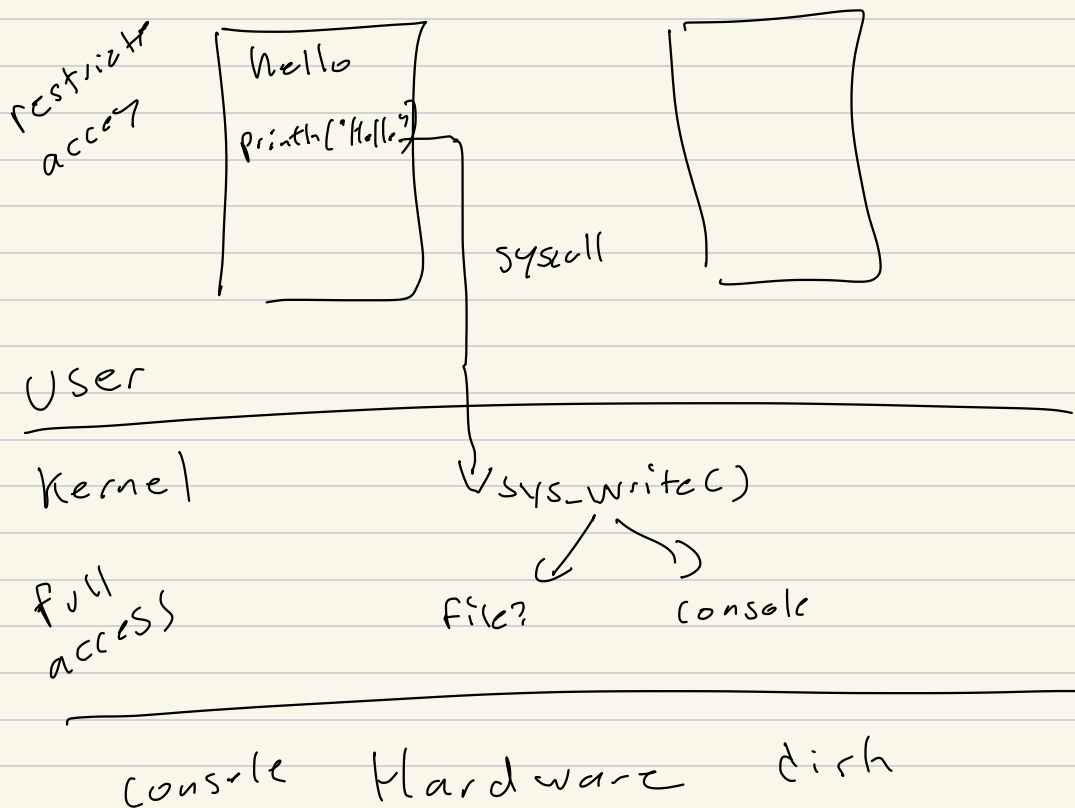 restrict
access
hello
println("Hello")
syscall
User
Kernel
sys_write()
full
access
file?
console
console Hardware disk